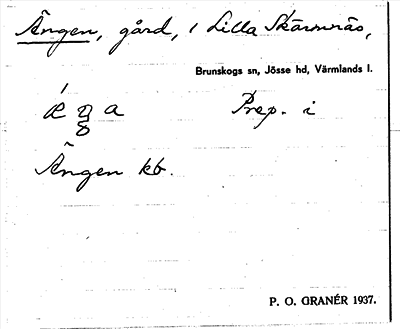 Ängen, gård, i Lilla Skärmnäs,
Brunskogs sn, Jösse hd, Värmlands l.
Prep. i
Ängen kb.
P. O. GRANÉR 1937.